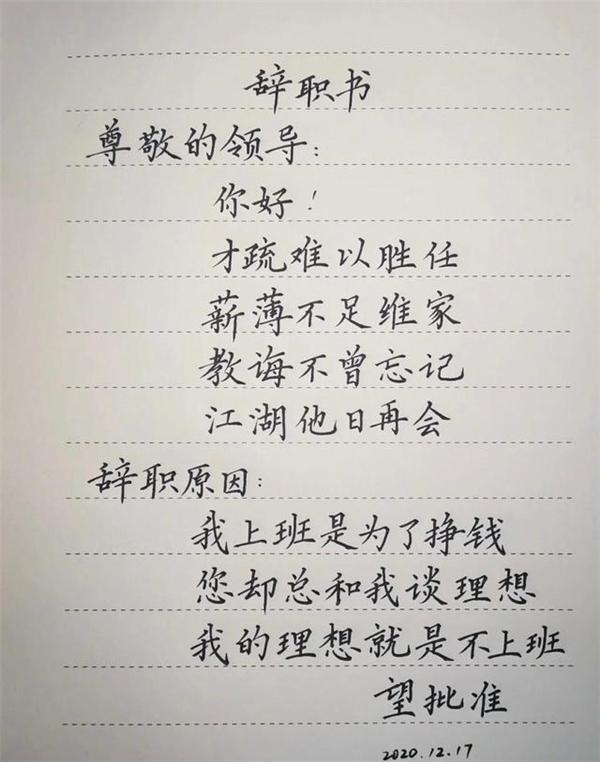 辞职书
尊敬的领导：
你好！
才疏难以胜任
薪薄不足维家
教诲不曾忘记
江湖他日再会
辞职原因：
我上班是为了挣钱
您却总和我谈理想
我的理想就是不上班
望批准
2020.12.17